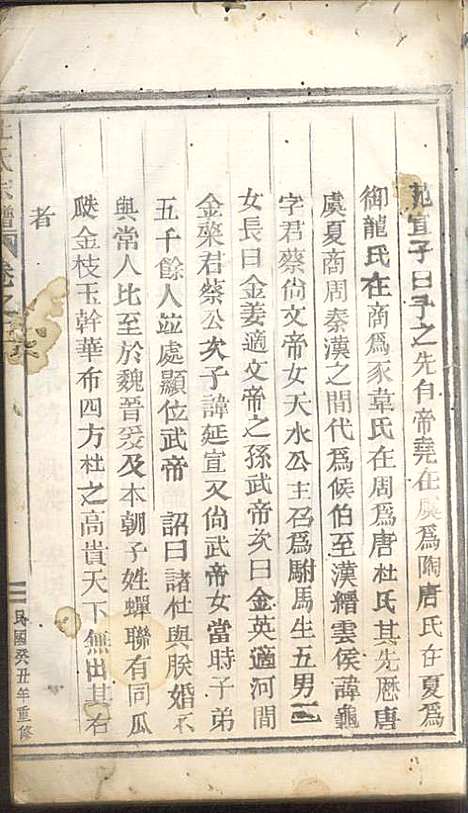 范宣子曰予之先自帝堯在虞爲陶唐氏在夏爲
御龍氏在商爲豕韋氏在周爲唐杜氏其先歷唐
虞夏商周秦漢之間代爲候伯至漢縉雲侯諱龜
字君蔡尙文帝女天水公主召爲駙馬生五男二
女長曰金姜適文帝之孫武帝次曰金英適河間
金槩君蔡公次子諱延宣又尙武帝女當時子弟
五千餘人竝處顯位武帝 詔曰諸杜與朕婚不
與常人比至於魏晉爰及本朝子姓蟬聯有同瓜
瓞金枝玉幹華布四方杜之高貴天下無出其右
者
杜氏宗譜 卷之
民國癸丑年重修